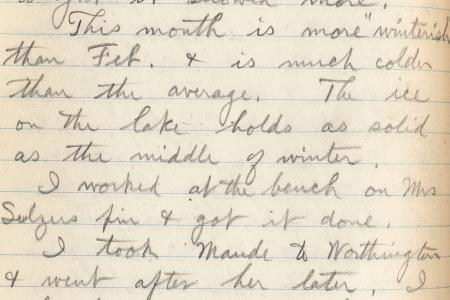 it snowed more.
This month is more "winterish
than Feb. & is much colder
than the average. The ice
on the lake holds as solid
as the middle of winter.
I worked at the bench on Mrs
Sulzers pin & got it done.
I took Maude to Worthington
& went after her later. I